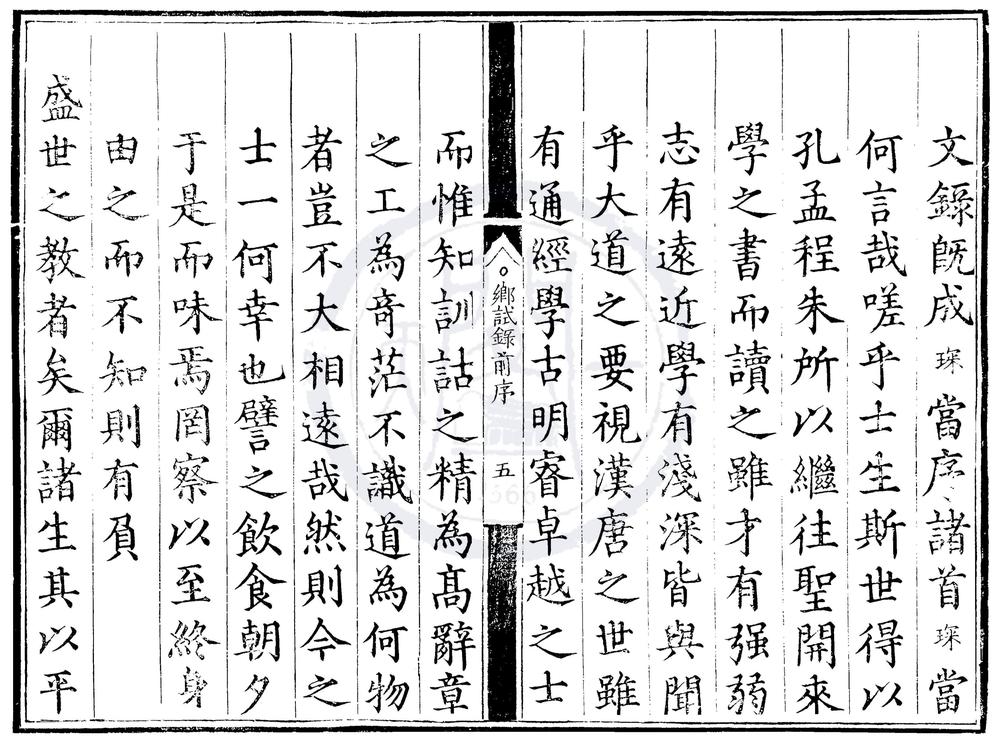 文錄既成琛當序諸首琛當
何言哉嗟乎士生斯世得以
孔孟程朱所以繼往聖開來
學之書而讀之雖才有强弱
志有遠近學有淺深皆與聞
乎大道之要視漢唐之世雖
有通經學古明睿卓越之士
鄉試錄前序 五
而惟知訓詁之精為高辭章
之工為奇茫不識道為何物
者豈不大相遠哉然則今之
士一何幸也譬之飲食朝夕
于是而味焉罔察以至終身
由之而不知則有負
盛世之教者矣爾諸生其以平